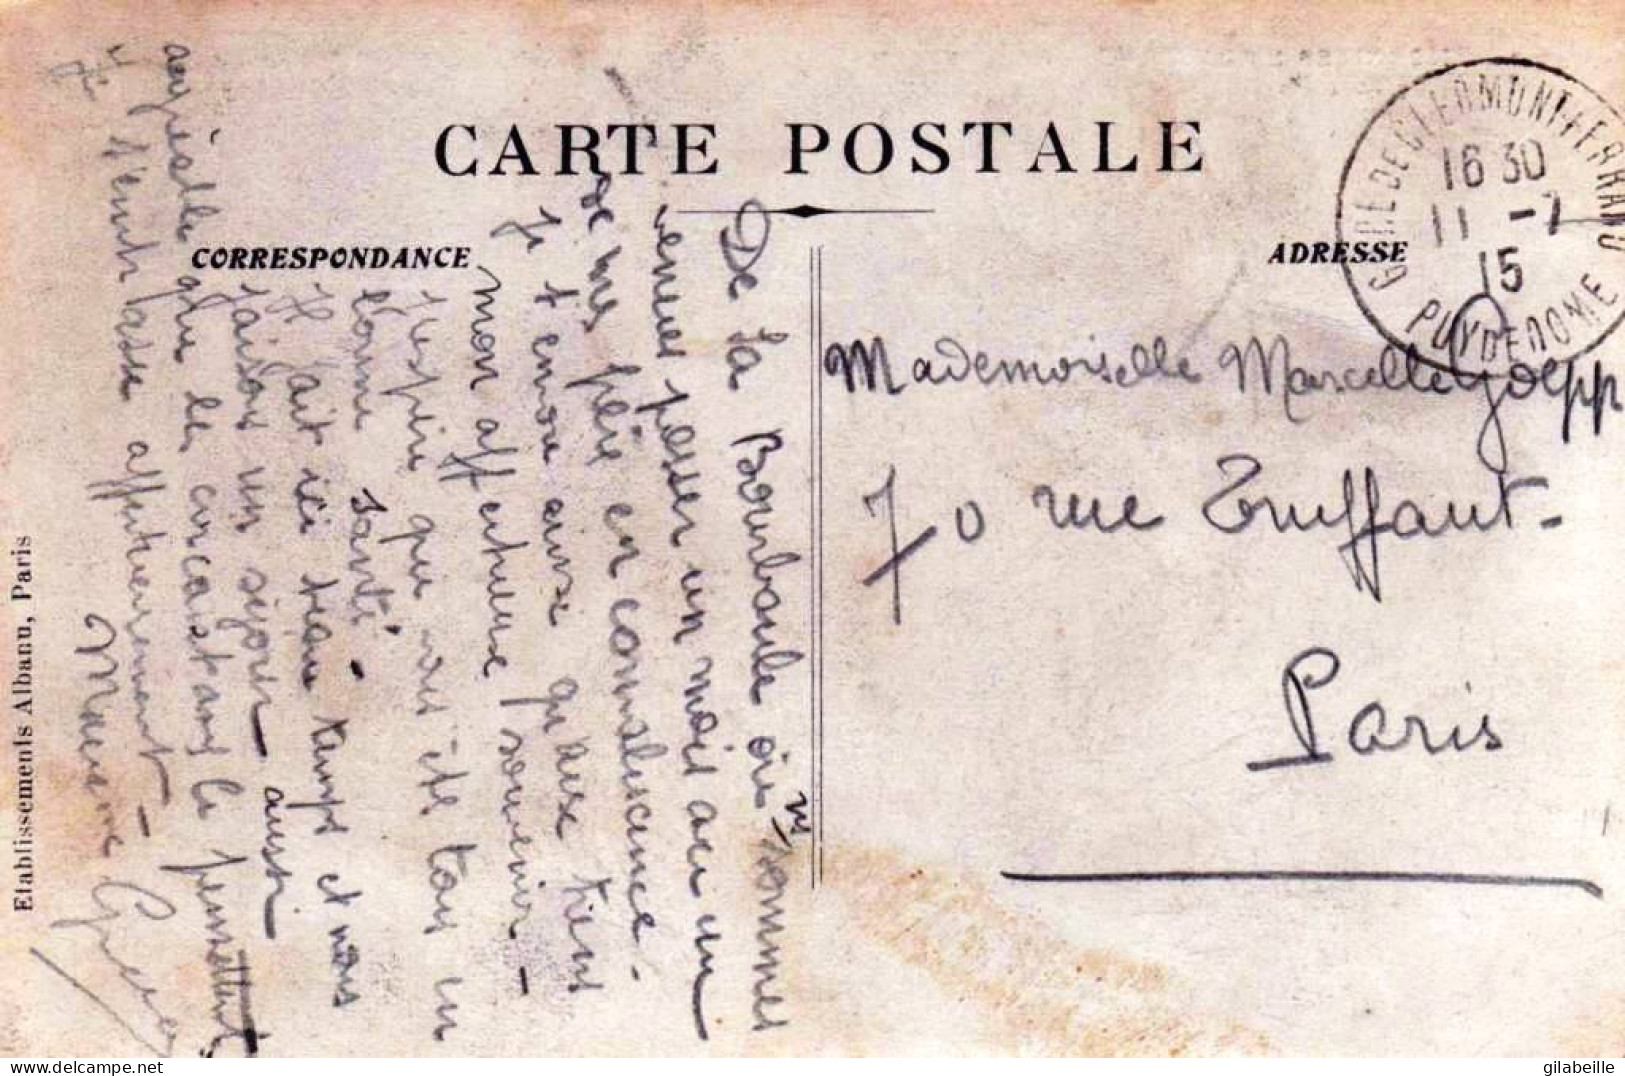 CARTE POSTALE
CORRESPONDANCE
ADRESSE
GARE DE CLERMONT-FERRAND
16 30
11 -7
15
PUY DE DOME
Mademoiselle Marcelle Goepp
70 rue Truffaut-
Paris
De La Bourboule où ns sommes
venues passer un mois avec un
de mes père en convalescence.
Je t'envoie ainsi qu'aux tiens
mon affectueux souvenir -
J'espère que vous êtes tous en
bonne santé.
Il fait ici beau temps et nous
faisons un séjour aussi
agréable que les circonstances le permettent
Je t'embrasse affectueusement -
Maxime
Etablissements Albanu, Paris
gilabeille